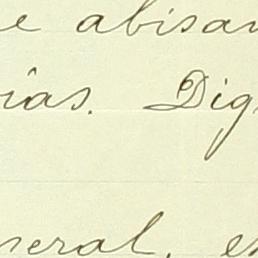 e abisan
ias. Dig
neral, es